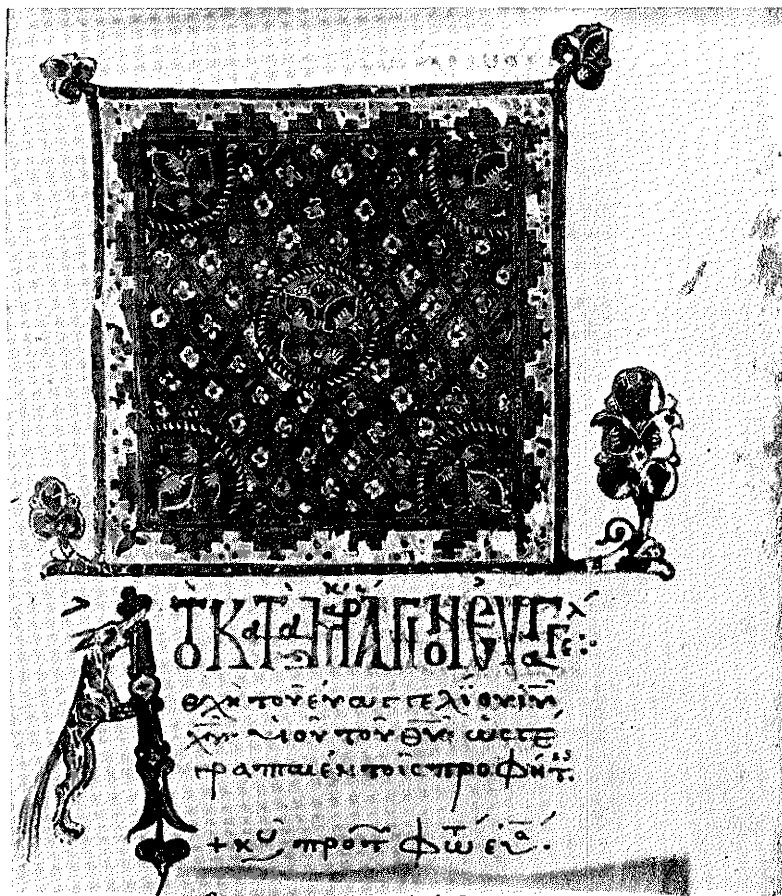 Τὸ ΚΑΤᾺ ΜΆΡΚ ἍΓΙΟΝ ΕΥΑΓΓΕΛ:
Ἀρχὴ τοῦ εὐαγγελίου ἰῦ
χῦ υἱοῦ τοῦ θῦ· ὡς γέ
γραπται ἐν τοῖς προφήτ.
+ κυ πρὸ τ φώτ